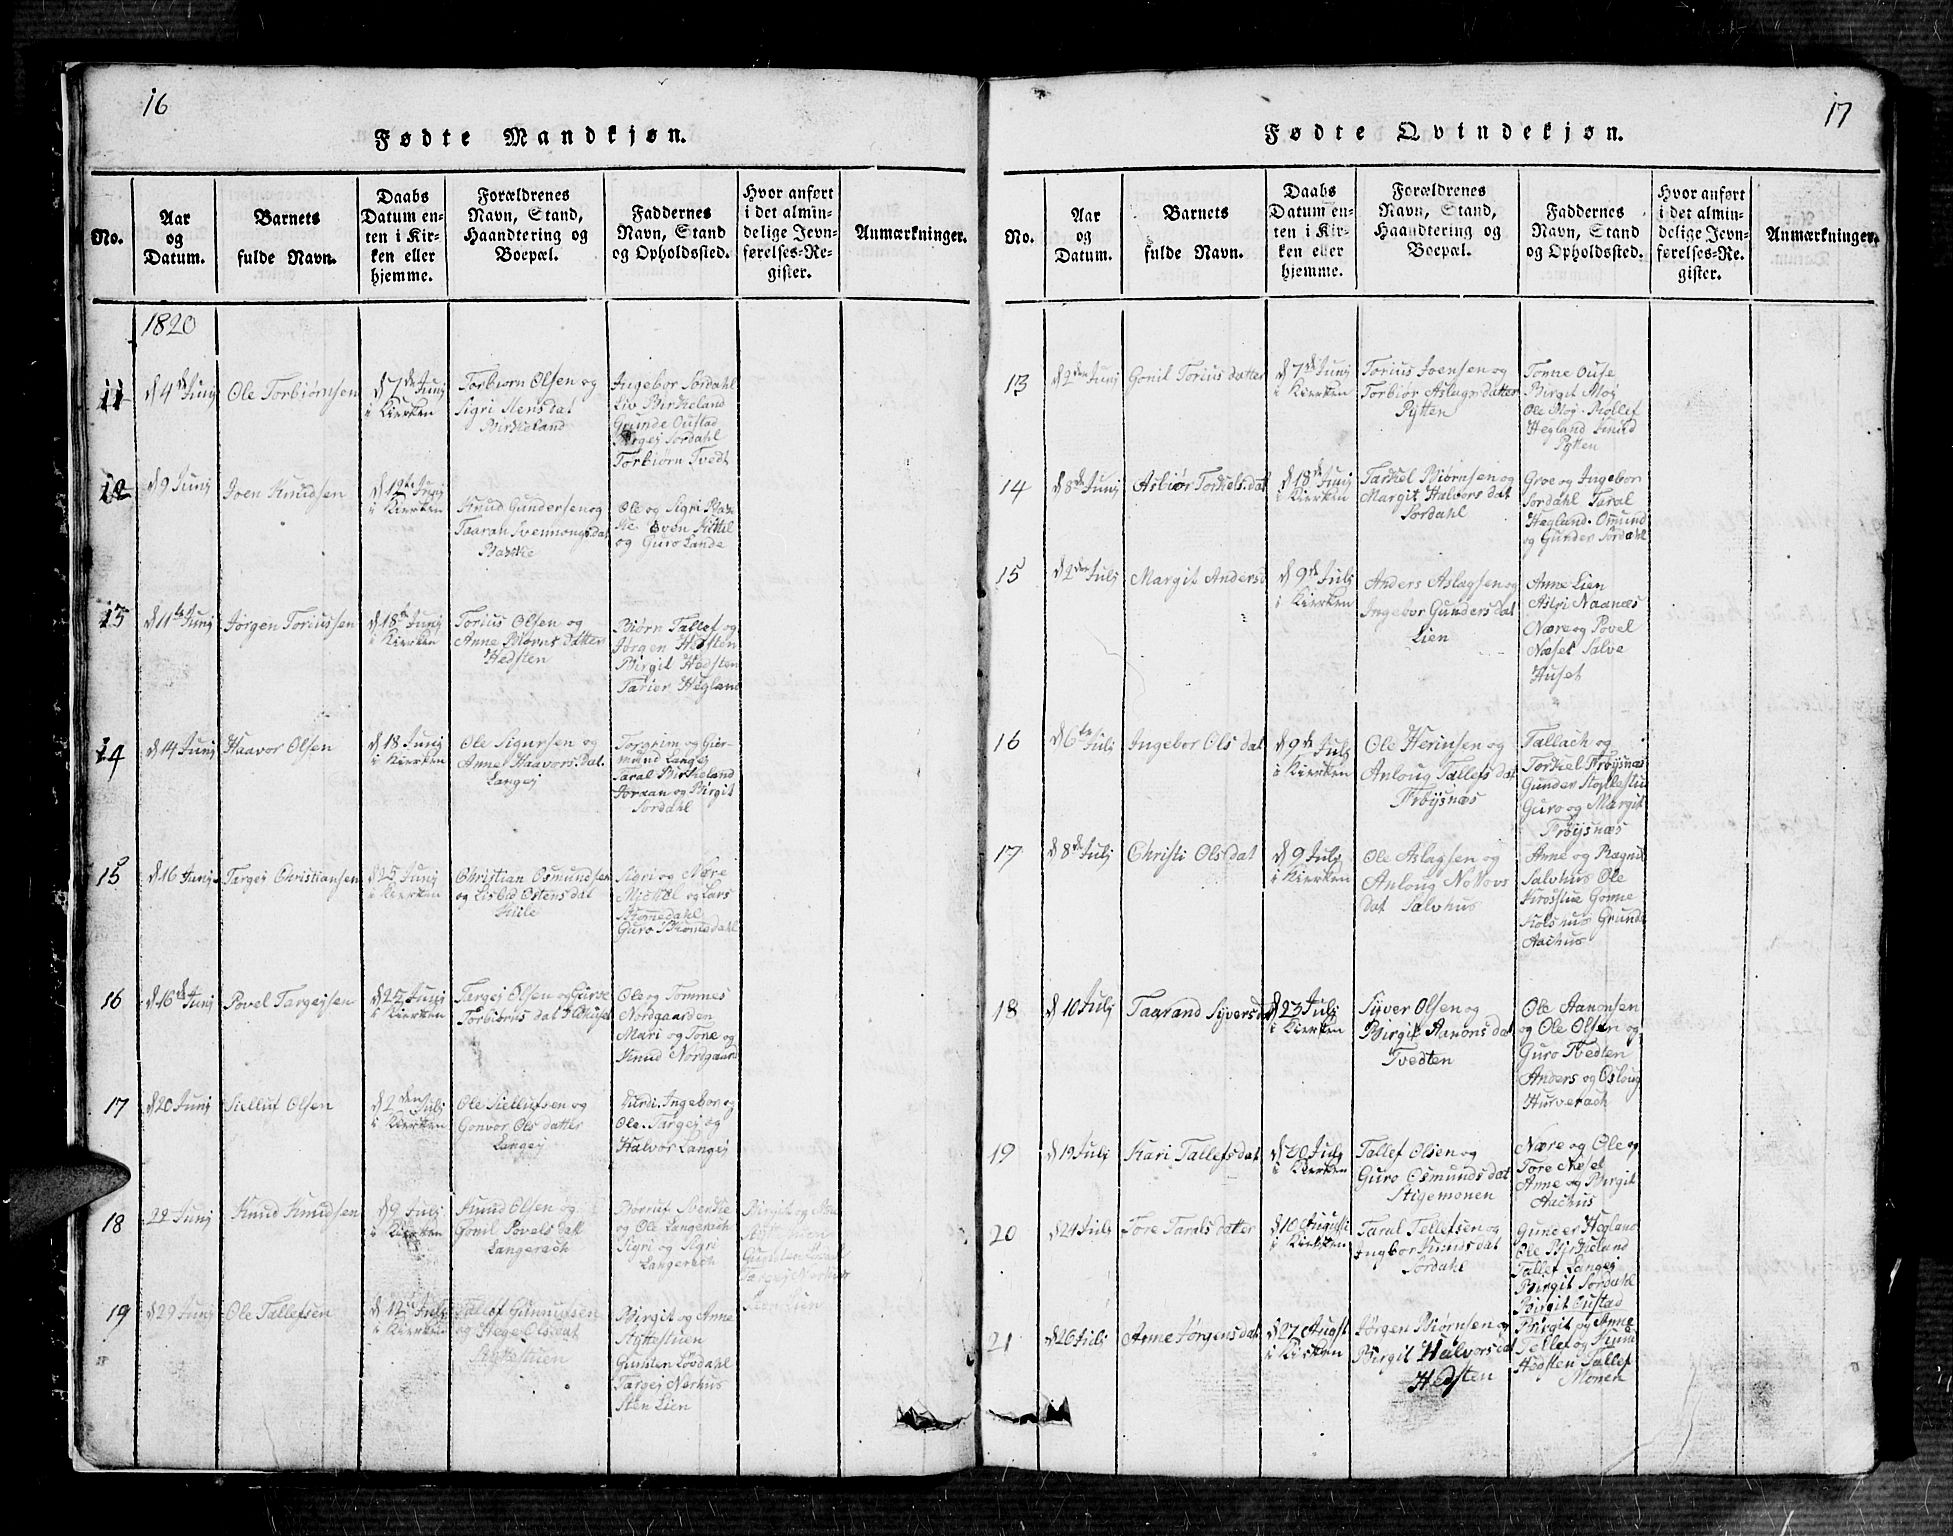 16
Fødte Mandkjøn.
No.
Aar
og
Datum.
Barnets
fulde Navn.
Daabs
Datum en-
ten i Kir-
ken eller
hjemme.
Forældrenes
Navn, Stand,
Haandtering og
Boepæl.
Faddernes
Navn, Stand
og Opholdssted.
Hvor anført
i det almin-
delige Jevn-
førelses-Re-
gister.
Anmærkninger.
1820
11
d 4de Junj
Ole Torbiørnsen
d 7de Junj
i Kierken
Torbiørn Olsen og
Sigri
Birkeland
Ingebor Sordahl
Liv Birkeland
Grunde Oustad
Targej Sordahl
Torbiørn Tvedt
12
d 9 Junj
Joen Knudsen
i Kierken
Knud Gundersen og
Taaran Svennongsdat
Bakke
Ole og Sigri Bak-
ke Even Kittil
og Guro Lande
13
d 11te Junj
Jørgen Toriussen
d 18de Junj
i Kierken
Torius Olsen og
Anne Biørns Datter
Hedsten
Biørn Tallef og
Jørgen Hedsten
Birgit Hedsten
Tarier Hegland
14
d 14 Junj
Haavor Olsen
d 18 Junj
i Kierken
Ole Sigursen og
Anne Haavors.Dat.
Langej
Torgrim og Gier-
mund Langej
Taral Birkeland
Joraan og Birgit
Sordahl
15
d 16 Junj
Targej Christiansen
d 25 Junj
i Kierken
Christian Osmundsen
og Lisbed Ostensdat
Kiile
Sigri og Nære
Michel og Lars
Homedahl
Guro Homedahl
16
d 16de Junj
Povel Targejsen
d 25 Junj
i Kierken
Targej Olsen og Gurve
Torbiørns dat
Ole og Tommes
Nordgaarden
Mari og Tone og
Knud Nordgaard
17
d 20 Junj
Sielluf Olsen
d 2den Julj
i Kierken
Ole Siellufsen og
Gonvor Ols datter
Langej
Jurdi. Ingebor og
Ole. Targej og
Halvor Langej
18
22 Junj
Knud Knudsen
d 9 Julj
i Kierken
Knud Olsen og
Gonil Povels dat
Langerach
og Ole Langerach
Sigri og Sigri
Langerach
Birgit og Ane
Targej Nerhus
Sten Lien
19
d 29 Junj
Ole Tallefsen
i Kierken
Tallef Gunnufsen
og Hege Olsdat
Birgit og Anne
Gunsten Løvdahl
Targej Nerhus
Sten Lien
17
Fødte Qvindekjøn.
No.
Aar
og
Datum.
Barnets
fulde Navn.
Daabs
Datum en-
ten i Kir-
ken eller
hjemme.
Forældrenes
Navn, Stand,
Haandtering og
Boepæl.
Faddernes
Navn, Stand
og Opholdssted.
Hvor anført
i det almin-
delige Jevn-
førelses-Re-
gister.
Anmærkninger.
13
d 2den Junj
Gonil Torius datter
d 7de Junj
i Kierken
Torius Joensen og
Torbiør Aslags datter
Pytten
Tonne Ouse
Birgit Moj
Ole Moj Rollef
Hegland Knud
Pytten
14
d 8de Junj
Asbiør Torkels.dat
d 18de Junj
i Kierken
Tarkel Biørnsen og
Margit Halvors dat
Sordahl
Groe og Ingebor
Sordahl Taral
Hegland. Omund
og Gunder Sordahl
15
d 2den Julj
Margit Andersd
d 9de Julj
i Kierken
Anders Aslagsen og
Ingebor Gunders dat
Lien
Anne Lien
Astri Naanæs
Nære og Povel
Næset Salve
Huset
16
d 6te Julj
Ingebor Ols dat
d 9de Julj
i Kierken
Ole Herjusen og
Anloug Tallefs dat
Frøysnæs
Tallach og
Torkel Frøysnæs
Gunder
Guro og Margit
Frøysnæs
17
d 8de Julj
Christi Olsdat
d 9 Julj
i Kierken
Ole Aslagsen og
Anloug
dat Salvhus
Anne og Ragnil
Salvhus Ole
Gonne
Grunde
Aachus
18
d 10 Julj
Taarand Syversdat
d 23 Julj
i Kierken
Syver Olsen og
Birgit Aanons dat
Tvedten
Ole Aanonsen
og Ole Olsen og
Guro Tvedten
Anders og Osloug
Hurverach
19
d 19 Julj
Kari Tallefsdat
i Kierken
Tallef Olsen og
Guro Osmunds dat
Stigemonen
Nære og Ole og
Tore Næset
Anne og Birgit
Aachus
20
d 24 Julj
Tore Tarals datter
d 10 August
i Kierken
Taral Tellefsen og
Ingbor Knuds dat
Sordahl
Gunder Hegland
Ole Birkeland
Tallef Langej
Birgit Sordahl
Birgit Oustad
21
d 26 Julj
Anne Jørgensdat
d 27 August
i Kierken
Jørgen Biørnsen og
Birgit Halvorsdat
Hedsten
Birgit og Anne
Tellef og Knud
Hedsten Tallef
Monen